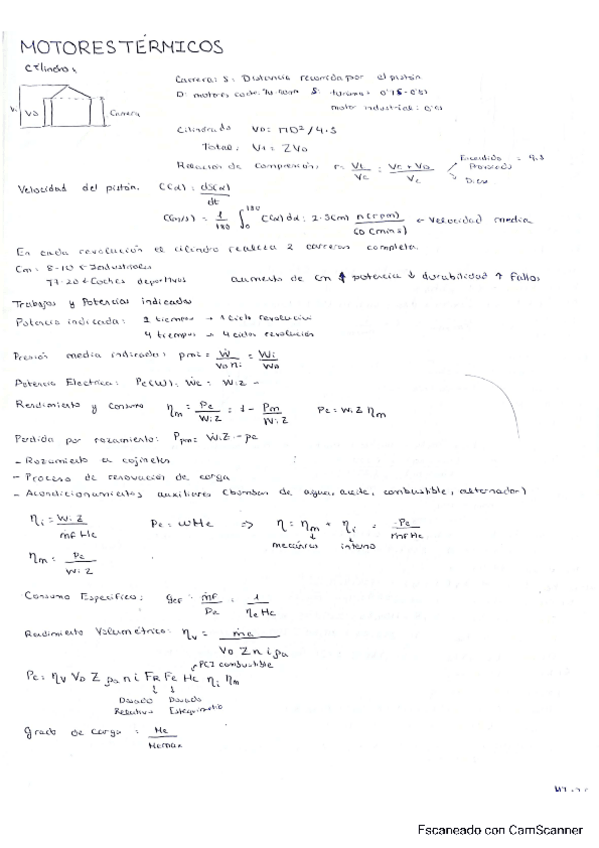 MOTORES TÉRMICOS
Cilindro:
Carrera: S: Distancia recorrida por el pistón
VD Carrera
Cilindrada VD = πD²/4·S
Total: VT = ZVD
Relación de compresión: r = VT/VC = (VC + VD)/VC
Velocidad del pistón. C(α) = ds(α)/dt
C(m/s) = 1/180 ∫₀¹⁸⁰ C(α)dα = 2·S(m) n(rpm)/60(min/s) ← Velocidad media
En cada revolución el cilindro realiza 2 carreras completa.
Cm = 8-10 Industriales
Coches deportivos aumento de cm ↑ potencia ↓ durabilidad ↑ fallos
Trabajos y Potencias indicadas
Potencia indicada: 2 tiempos → 1 ciclo revolución
4 tiempos → 4 ciclos revolución
Presión media indicada: pmi = Ẇ/(VD ni) = Wi/VD
Potencia Electrica: Pe(W): We = Ẇ·Z -
Rendimiento y Consumo ηm = Pe/(Wi·Z) = 1 - Pm/(Wi·Z) Pe = Wi Z ηm
Perdida por rozamiento: Ppm = Ẇ·Z - Pe
- Rozamiento a cojinetes
- Proceso de renovacion de carga
- Acondicionamientos auxiliares (bombas de agua, aceite, combustible, alternador)
ηi = W·Z/(ṁF Hc) Pe = WMe ⇒ η = ηm * ηi = Pe/(ṁF Hc)
mecánico interno
ηm = Pe/(Wi·Z)
Consumo Especifico: gef = ṁF/Pe = 1/(ηe Hc)
Rendimiento Volumétrico: ηv = ṁa/(VD Z n i ρa)
PCI combustible
Pe = ηv VD Z ρa n i FR Fe Hc ηi ηm
Dosado Dosado
Relativo Estequimetrio
Grado de carga: Me/Memax
Escaneado con CamScanner